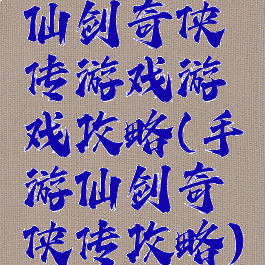 仙剑奇侠
传游戏游
戏攻略(手
游仙剑奇
侠传攻略)